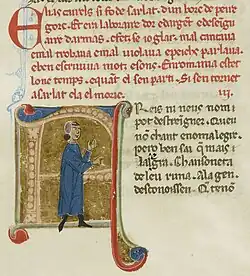 Elias carels si fo de sarlat. dun borc de peire
gorc. Et era laboraire dor e dargent e deseigna
ire darmas. e fetz se ioglar. mal cantaua
e mal trobaua e mal uiolaua e peichs parlaua.
e ben escriuia motz e sons. En romania estet
lonc temps. e quant el sen parti. Si sen tornet
a sarlat e la el moric. .iii.
Reis ni neus ni
pot destreigner. Queu
nō chant enomalegre.
pero ben sai q̄ mais i
Chansoneta
de leu runa. Ala gen
desconoissen. Q̄ teno